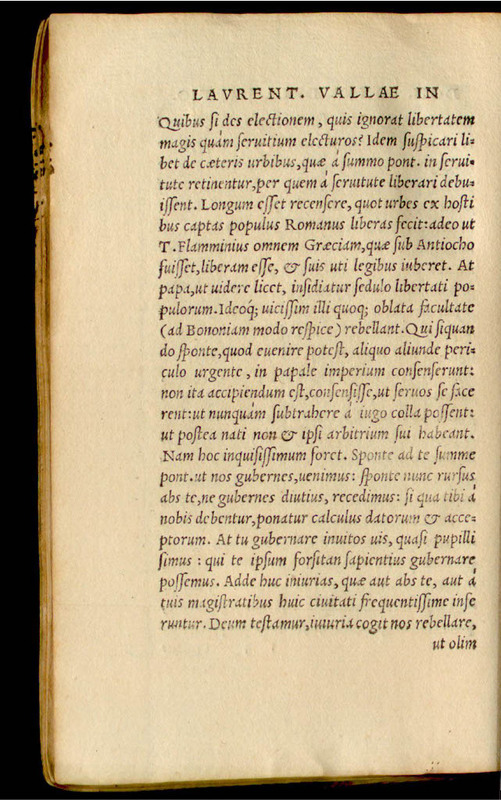 LAVRENT. VALLAE IN
Quibus si des electionem, quis ignorat libertatem
magis quám seruitium electuros? Idem suspicari li-
bet de cæteris urbibus, quæ á summo pont. in serui-
tute retinentur, per quem á seruitute liberari debu-
issent. Longum esset recensere, quot urbes ex hosti
bus captas populus Romanus liberas fecit: adeo ut
T. Flamminius omnem Græciam, quæ sub Antiocho
fuisset, liberam esse, & suis uti legibus iuberet. At
papa, ut uidere licet, insidiatur sedulo libertati po-
pulorum. Ideoq́; uicissim illi quoq; oblata facultate
(ad Bononiam modo respice) rebellant. Qui siquan
do sponte, quod euenire potest, aliquo aliunde peri-
culo urgente, in papale imperium consenserunt:
non ita accipiendum est, consensisse, ut seruos se face
rent: ut nunquam subtrahere á iugo colla possent:
ut postea nati non & ipsi arbitrium sui habeant.
Nam hoc iniquissimum foret. Sponte ad te summe
pont. ut nos gubernes, uenimus: sponte nunc rursus
abs te, ne gubernes diutius, recedimus: si qua tibi á
nobis debentur, ponatur calculus datorum & acce-
ptorum. At tu gubernare inuitos uis, quasi pupilli
simus: qui te ipsum forsitan sapientius gubernare
possemus. Adde huc iniurias, quæ aut abs te, aut á
tuis magistratibus huic ciuitati frequentissime infe
runtur. Deum testamur, iniuria cogit nos rebellare,
ut olim